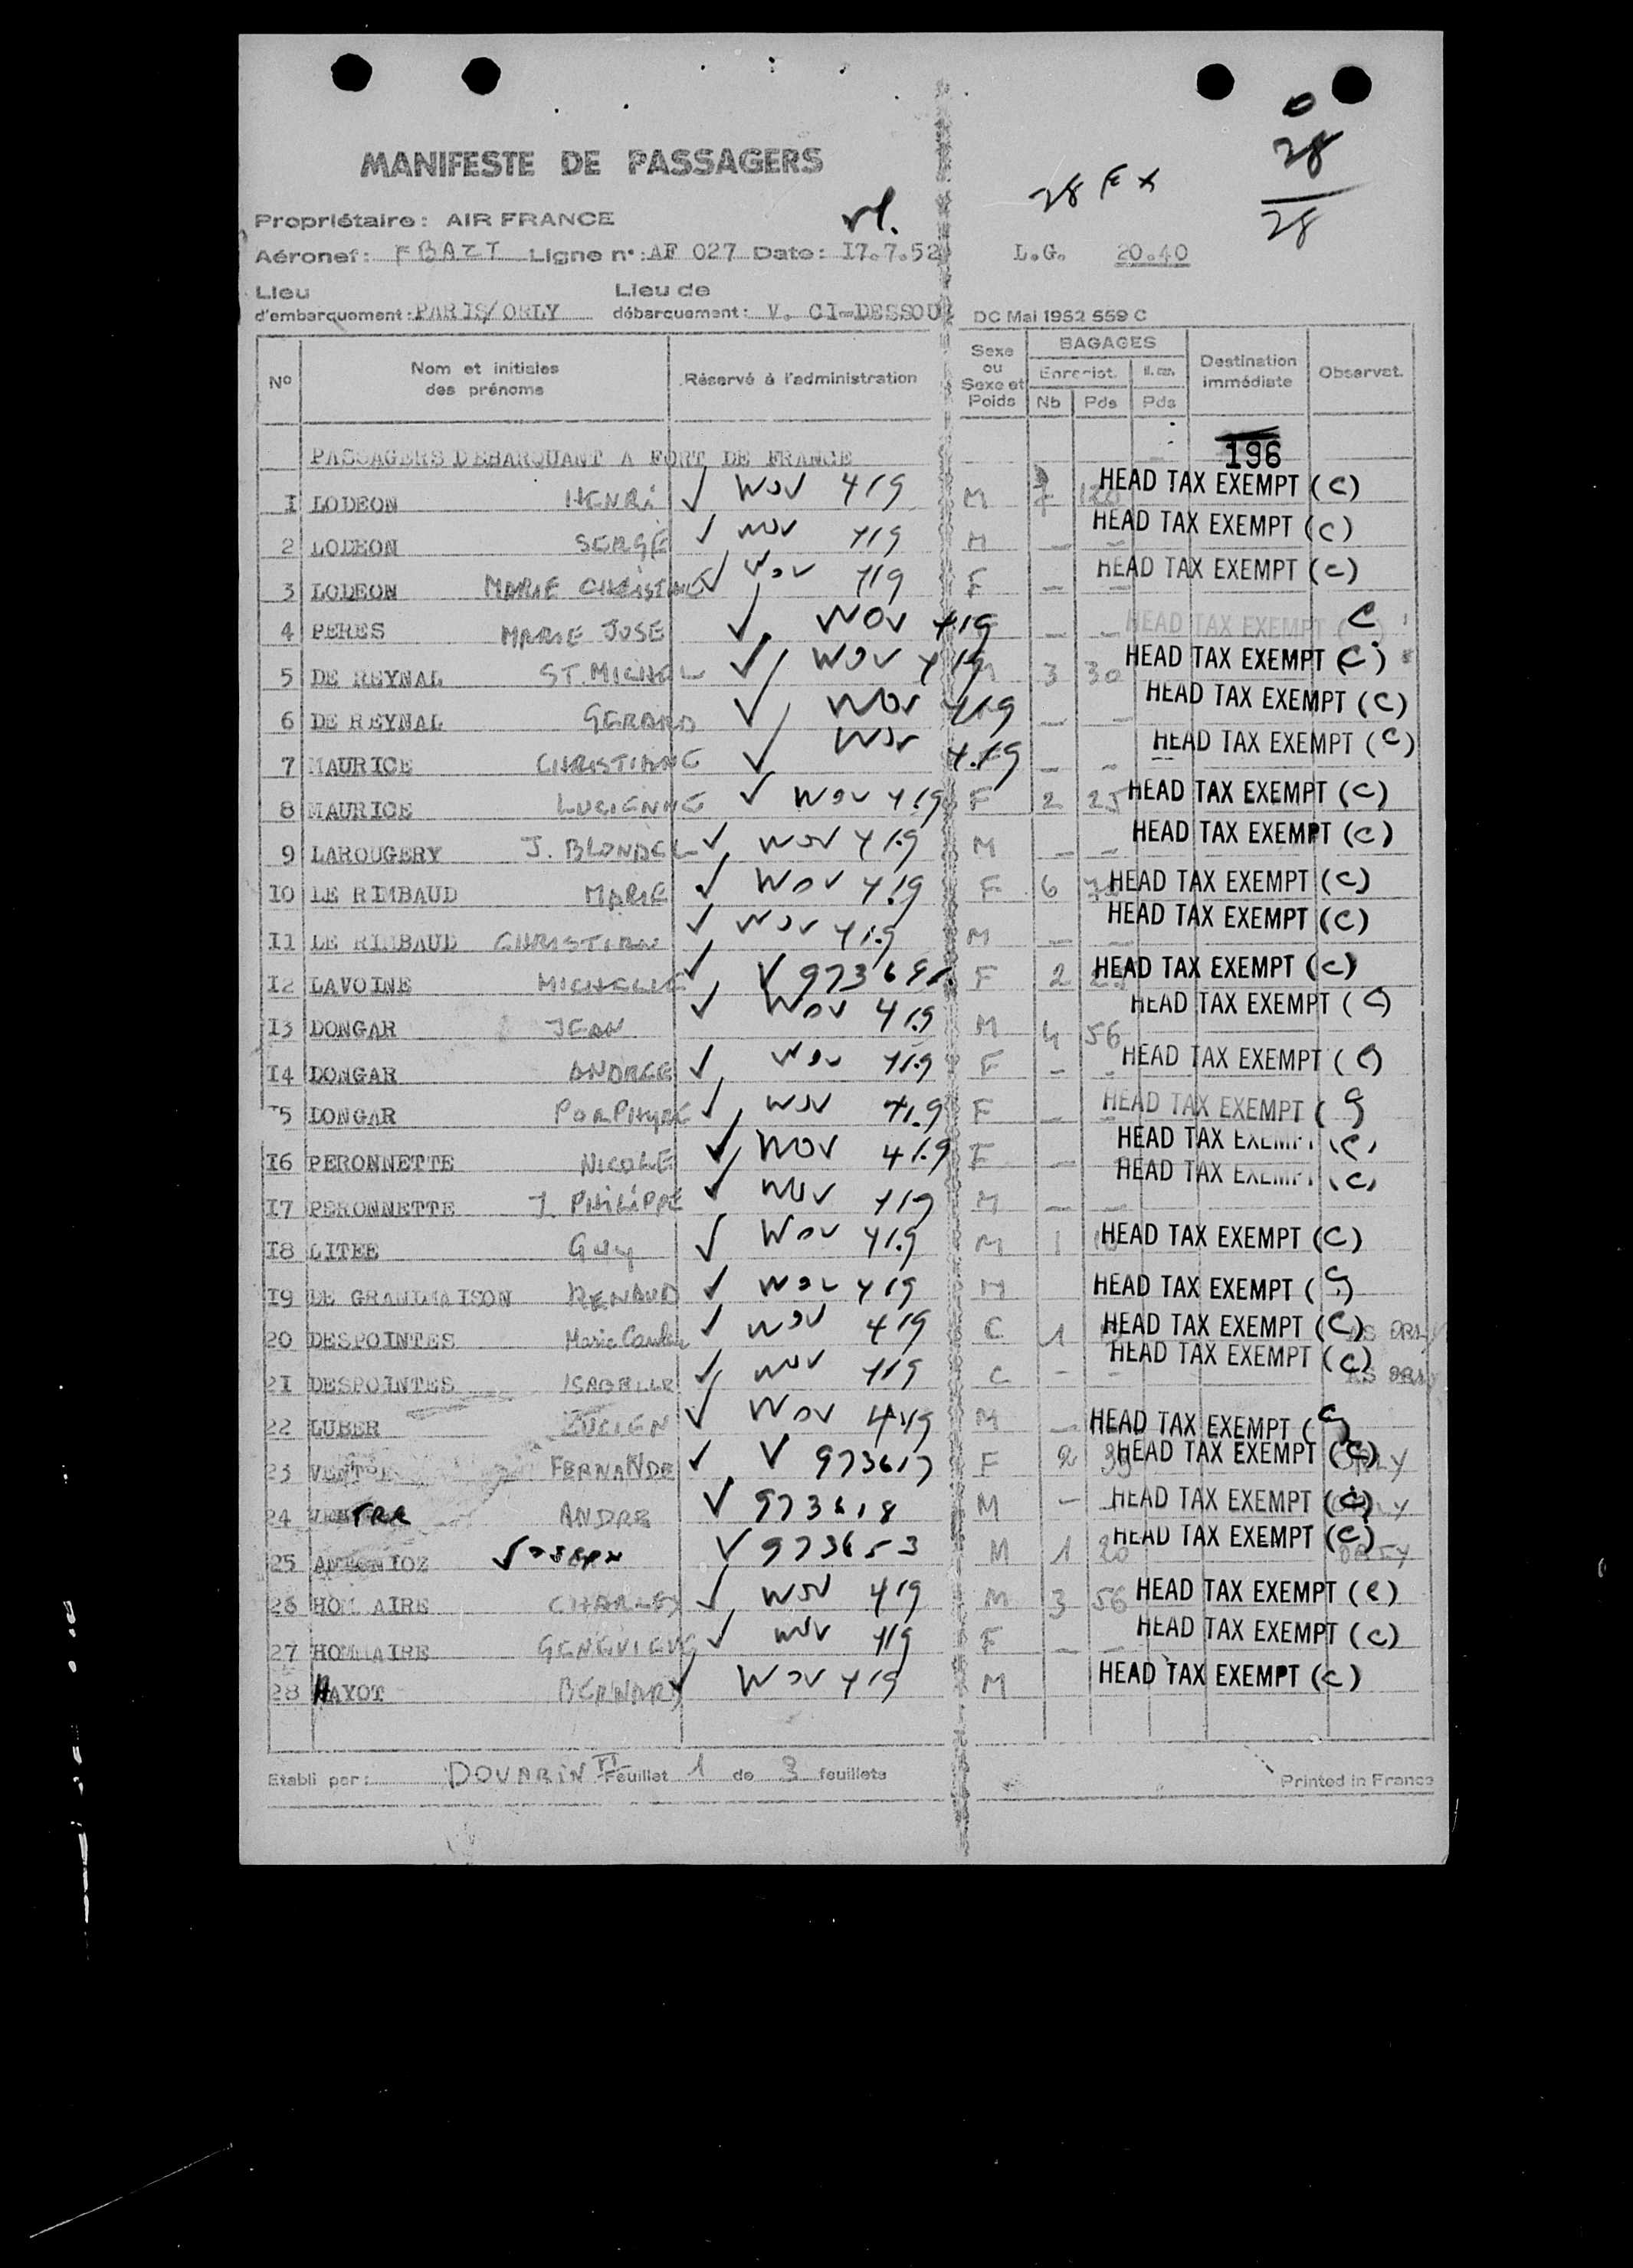 0
28
28
28 EX
MANIFESTE DE PASSAGERS
Propriétaire: AIR FRANCE
Aéronef: FBAZI Ligne n°: AF 027 Date: I7.7.52 L.G. 20.40
Lieu d'embarquement: PARIS/ORLY Lieu de débarquement: V. CI-DESSOU DC Mai 1952 559 C
N° Nom et initiales des prénoms Réservé à l'administration Sexe ou Sexe et Poids BAGAGES Enregist. Nb Pds Pds Destination immédiate Observat.
196
PASSAGERS DEBARQUANT A FORT DE FRANCE
I LODEON HENRI WOV 419 M HEAD TAX EXEMPT (C)
2 LODEON SERGE WOV 419 M — — HEAD TAX EXEMPT (C)
3 LODEON MARIE CHRISTINE WOV 419 F — — HEAD TAX EXEMPT (C)
4 PERES MARIE JOSE WOV 419 — — HEAD TAX EXEMPT (C)
5 DE REYNAL ST. MICHEL WOV 419 M 3 30 HEAD TAX EXEMPT (C)
6 DE REYNAL GERARD WOV 419 — — HEAD TAX EXEMPT (C)
7 MAURICE CHRISTIANE WOV 419 — — HEAD TAX EXEMPT (C)
8 MAURICE LUCIENNE WOV 419 F 2 25 HEAD TAX EXEMPT (C)
9 LAROUGERY J. BLONDEL WOV 419 M — — HEAD TAX EXEMPT (C)
I0 LE RIMBAUD MARIE WOV 419 F 6 HEAD TAX EXEMPT (C)
I1 LE RIMBAUD CHRISTIAN WOV 419 M — — HEAD TAX EXEMPT (C)
I2 LAVOINE V F 2 HEAD TAX EXEMPT (C)
I3 DONGAR JEAN WOV 419 M 4 56 HEAD TAX EXEMPT (C)
I4 DONGAR ANDREE WOV 419 F - - HEAD TAX EXEMPT (C)
5 DONGAR PORPHYRE WOV 419 F — — HEAD TAX EXEMPT (C)
I6 PERONNETTE NICOLE WOV 419 F — HEAD TAX EXEMPT (C)
I7 PERONNETTE J. PHILIPPE WOV 419 M — — HEAD TAX EXEMPT (C)
I8 LITEE GUY WOV 419 M 1 HEAD TAX EXEMPT (C)
I9 DE GRANDMAISON RENAUD WOV 419 M HEAD TAX EXEMPT (C)
20 DESPOINTES Marie WOV 419 C 1 HEAD TAX EXEMPT (C)
2I DESPOINTES ISABELLE WOV 419 C - - HEAD TAX EXEMPT (C)
22 LUBER LUCIEN WOV 419 M — HEAD TAX EXEMPT (C)
23 FERNANDE V 973617 F 2 HEAD TAX EXEMPT (C) ORLY
24 ANDRE V 973618 M - HEAD TAX EXEMPT (C)
25 JOSEPH V 973653 M 1 20 HEAD TAX EXEMPT (C) ORLY
26 HOMMAIRE CHARLES WOV 419 M 3 56 HEAD TAX EXEMPT (C)
27 HOMMAIRE GENEVIEVE WOV 419 F — — HEAD TAX EXEMPT (C)
28 HAYOT BERNARD WOV 419 M HEAD TAX EXEMPT (C)
Etabli par: DOUARIN Feuillet 1 de 3 feuillets Printed in France